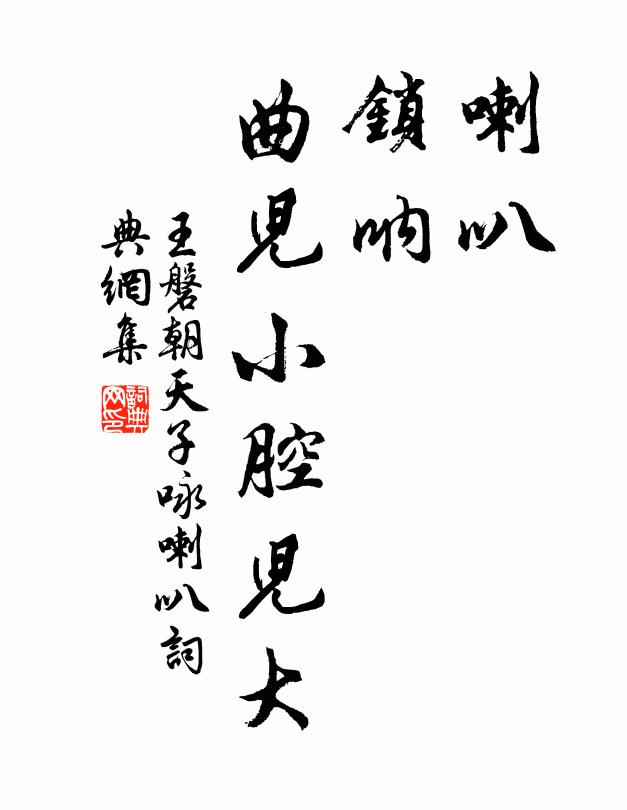 喇叭
鎖吶
曲兒小腔兒大
王磐朝天子咏喇叭詞
典網集
詞典
网印